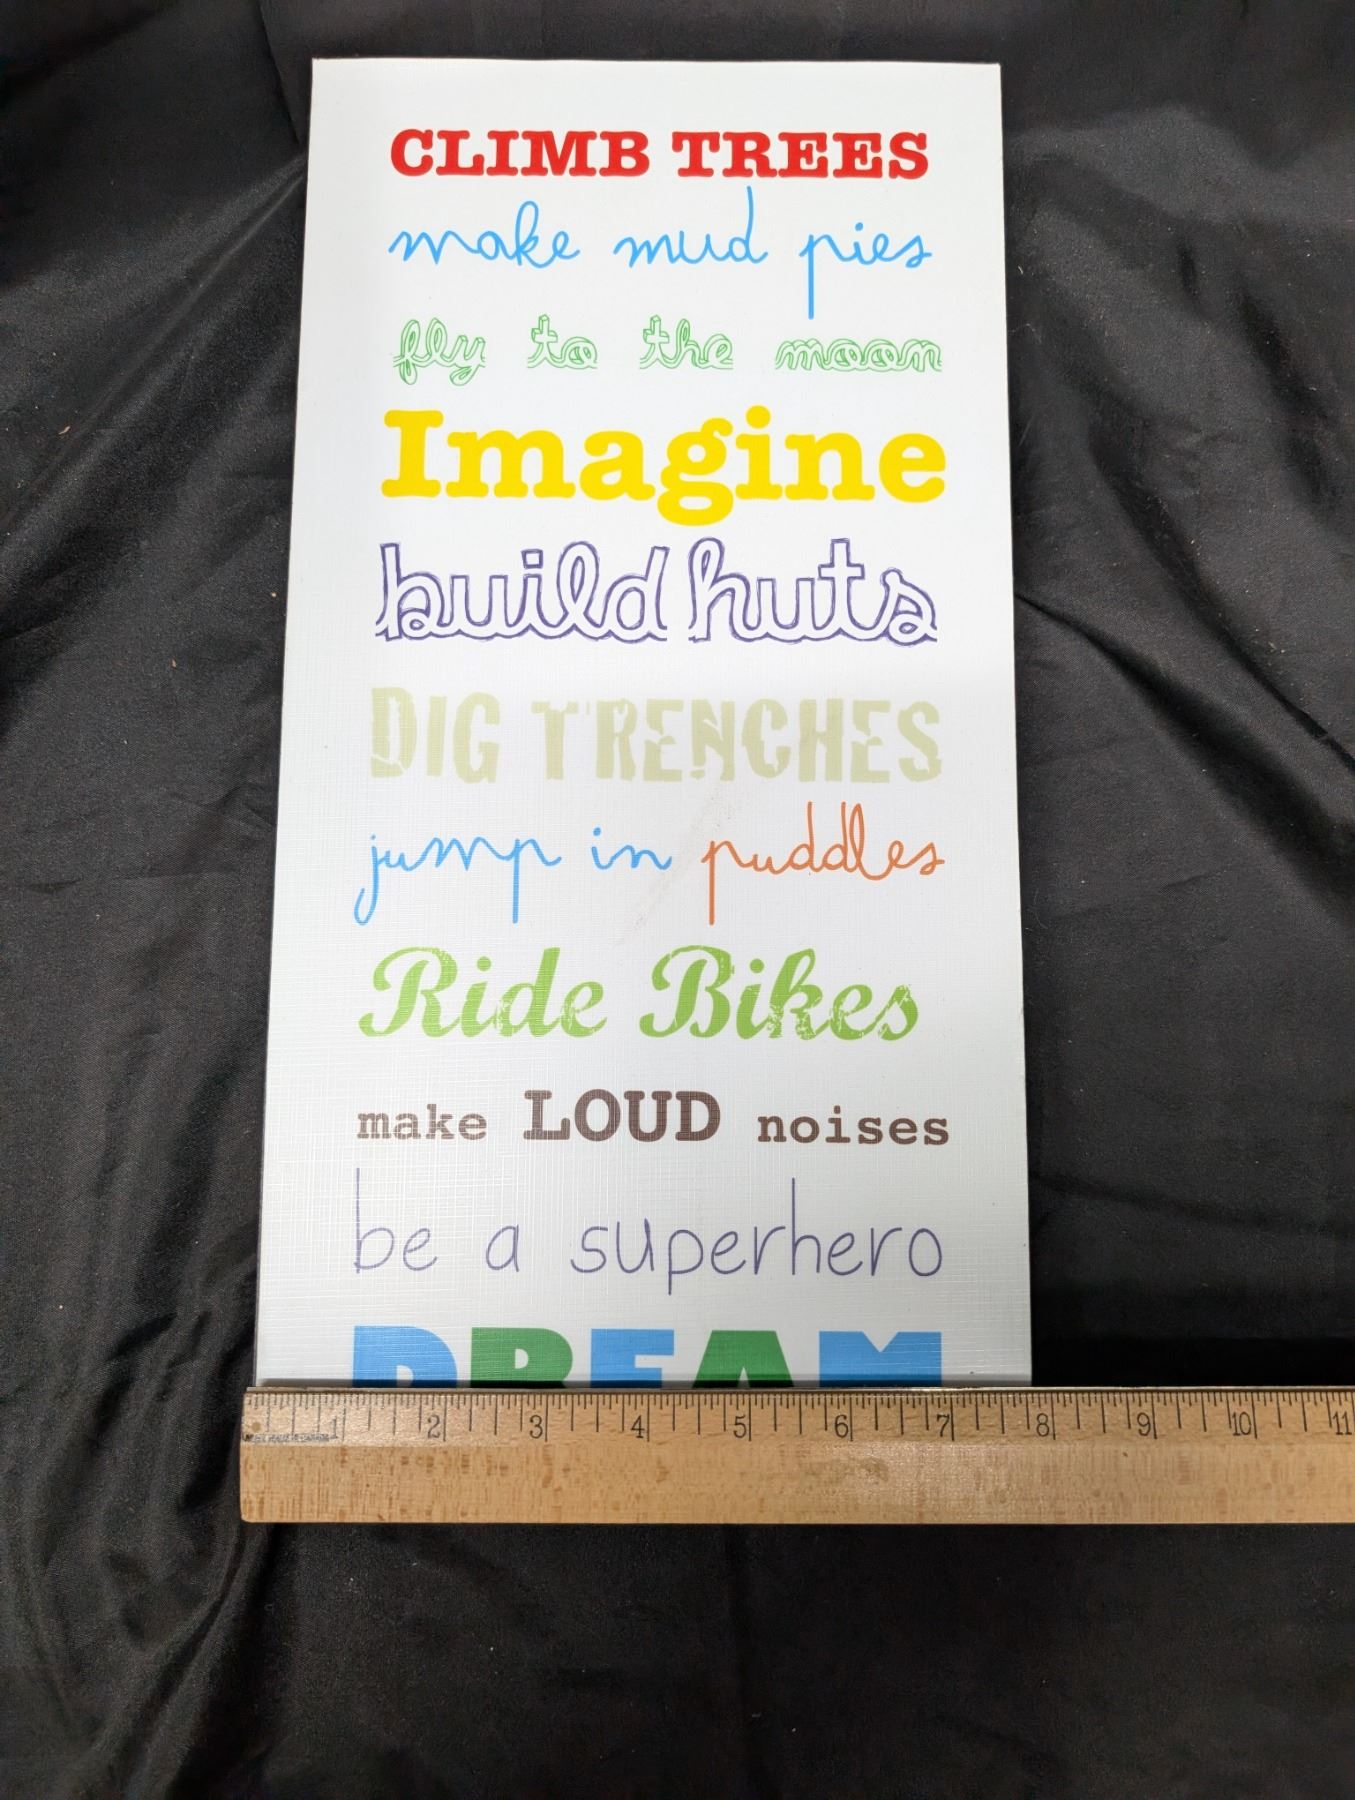 CLIMB TREES
make mud pies
fly to the moon
Imagine
build huts
DIG TRENCHES
jump in puddles
Ride Bikes
make LOUD noises
be a superhero
DREAM
1 2 3 4 5 6 7 8 9 10 11